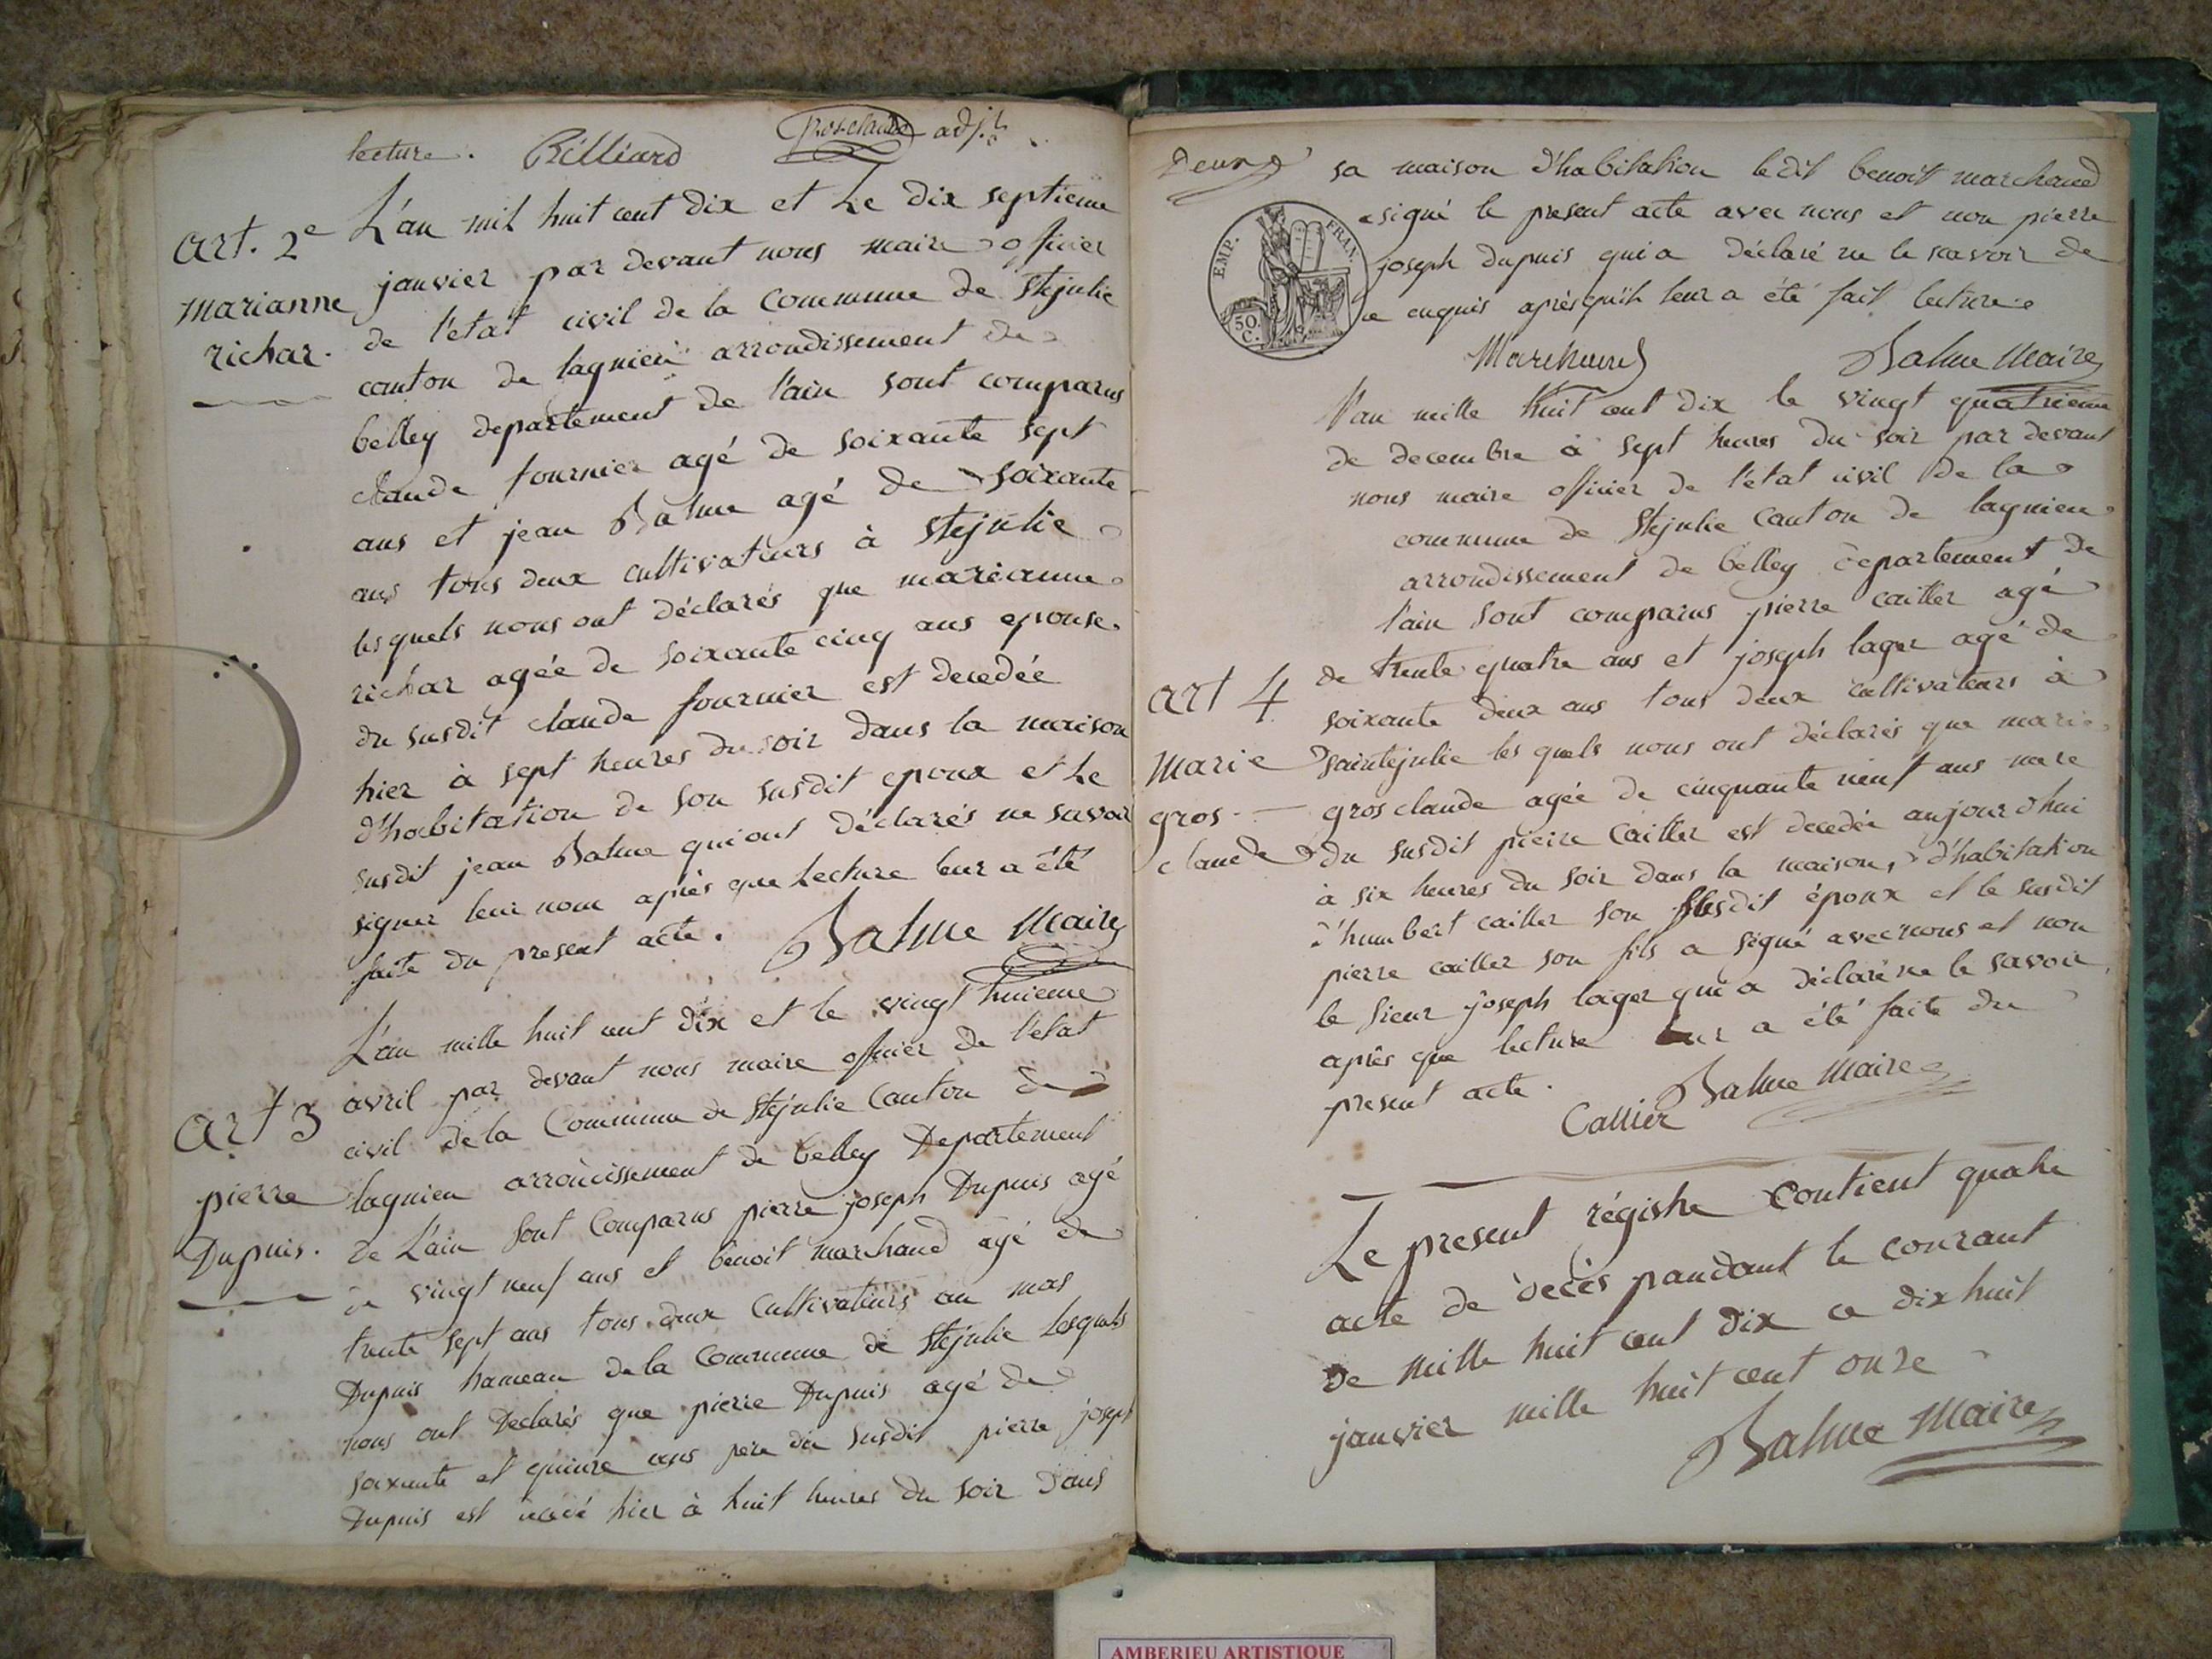 lecture. Billiard Grosclaude adj.t
Art. 2e
Marianne
richar.
L'an mil huit cent dix et Le dix septieme
janvier par devant nous maire officier
de l'etat civil de la Commune de Stejulie
canton de lagnieu arrondissement de
belley departement de l'ain sont comparus
claude fournier agé de soixante sept
ans et jean Balme agé de soixante
ans tous deux cultivateurs à Stejulie
les quels nous ont déclarés que marianne
richar agée de soixante cinq ans epouse
du susdit claude fournier est decedée
hier à sept heures du soir dans la maison
d'habitation de son susdit epoux et Le
susdit jean Balme qui ont déclarés ne savoir
signer leur nom après que Lecture leur a été
faite du present acte. Balme Maire
Art 3
pierre
Dupuis.
L'an mille huit cent dix et le vingt huieme
avril par devant nous maire officier de l'etat
civil de la Commune de Stejulie Canton de
lagnieu arrondissement de belley Departement
de L'ain sont Comparus pierre joseph Dupuis agé
de vingt neuf ans et benoit marchand agé de
trente sept ans tous deux Cultivateurs au mas
Dupuis hameau de la Commune de Stejulie Lesquels
nous ont Declarés que pierre Dupuis agé de
soixante et quinze ans pere du susdit pierre joseph
Dupuis est decedé hier à huit heures du soir Dans
Deux
EMP. FRAN.
50.
C.
sa maison d'habitation ledit benoit marchand
a signé le present acte avec nous et non pierre
joseph dupuis qui a déclaré ne le scavoir de
ce enquis après qu'il leur a été fait lecture
Marchand Balme Maire
l'an mille huit cent dix le vingt quatrieme
de decembre à sept heures du soir par devant
nous maire officier de l'état civil de la
commune de Stejulie Canton de lagnieu
arrondissement de belley departement de
l'ain sont comparus pierre cailler agé
de trente quatre ans et joseph lager agé de
soixante deux ans tous deux cultivateurs à
saintejulie les quels nous ont déclarés que marie
gros claude agée de cinquante neuf ans mere
du susdit pierre Cailler est decedée aujourdhui
à six heures du soir dans la maison, d'habitation
d'humbert cailler son susdit époux et le susdit
pierre cailler son fils a signé avec nous et non
le sieur joseph lager qui a déclaré ne le savoir
après que lecture leur a été faite du
present acte. Callier Balme Maire
art 4
Marie
gros
claude
Le present régistre Contient quatre
acte de décès pandant le courant
de mille huit cent dix ce dix huit
janvier mille huit cent onze
Balme Maire
AMBERIEU ARTISTIQUE